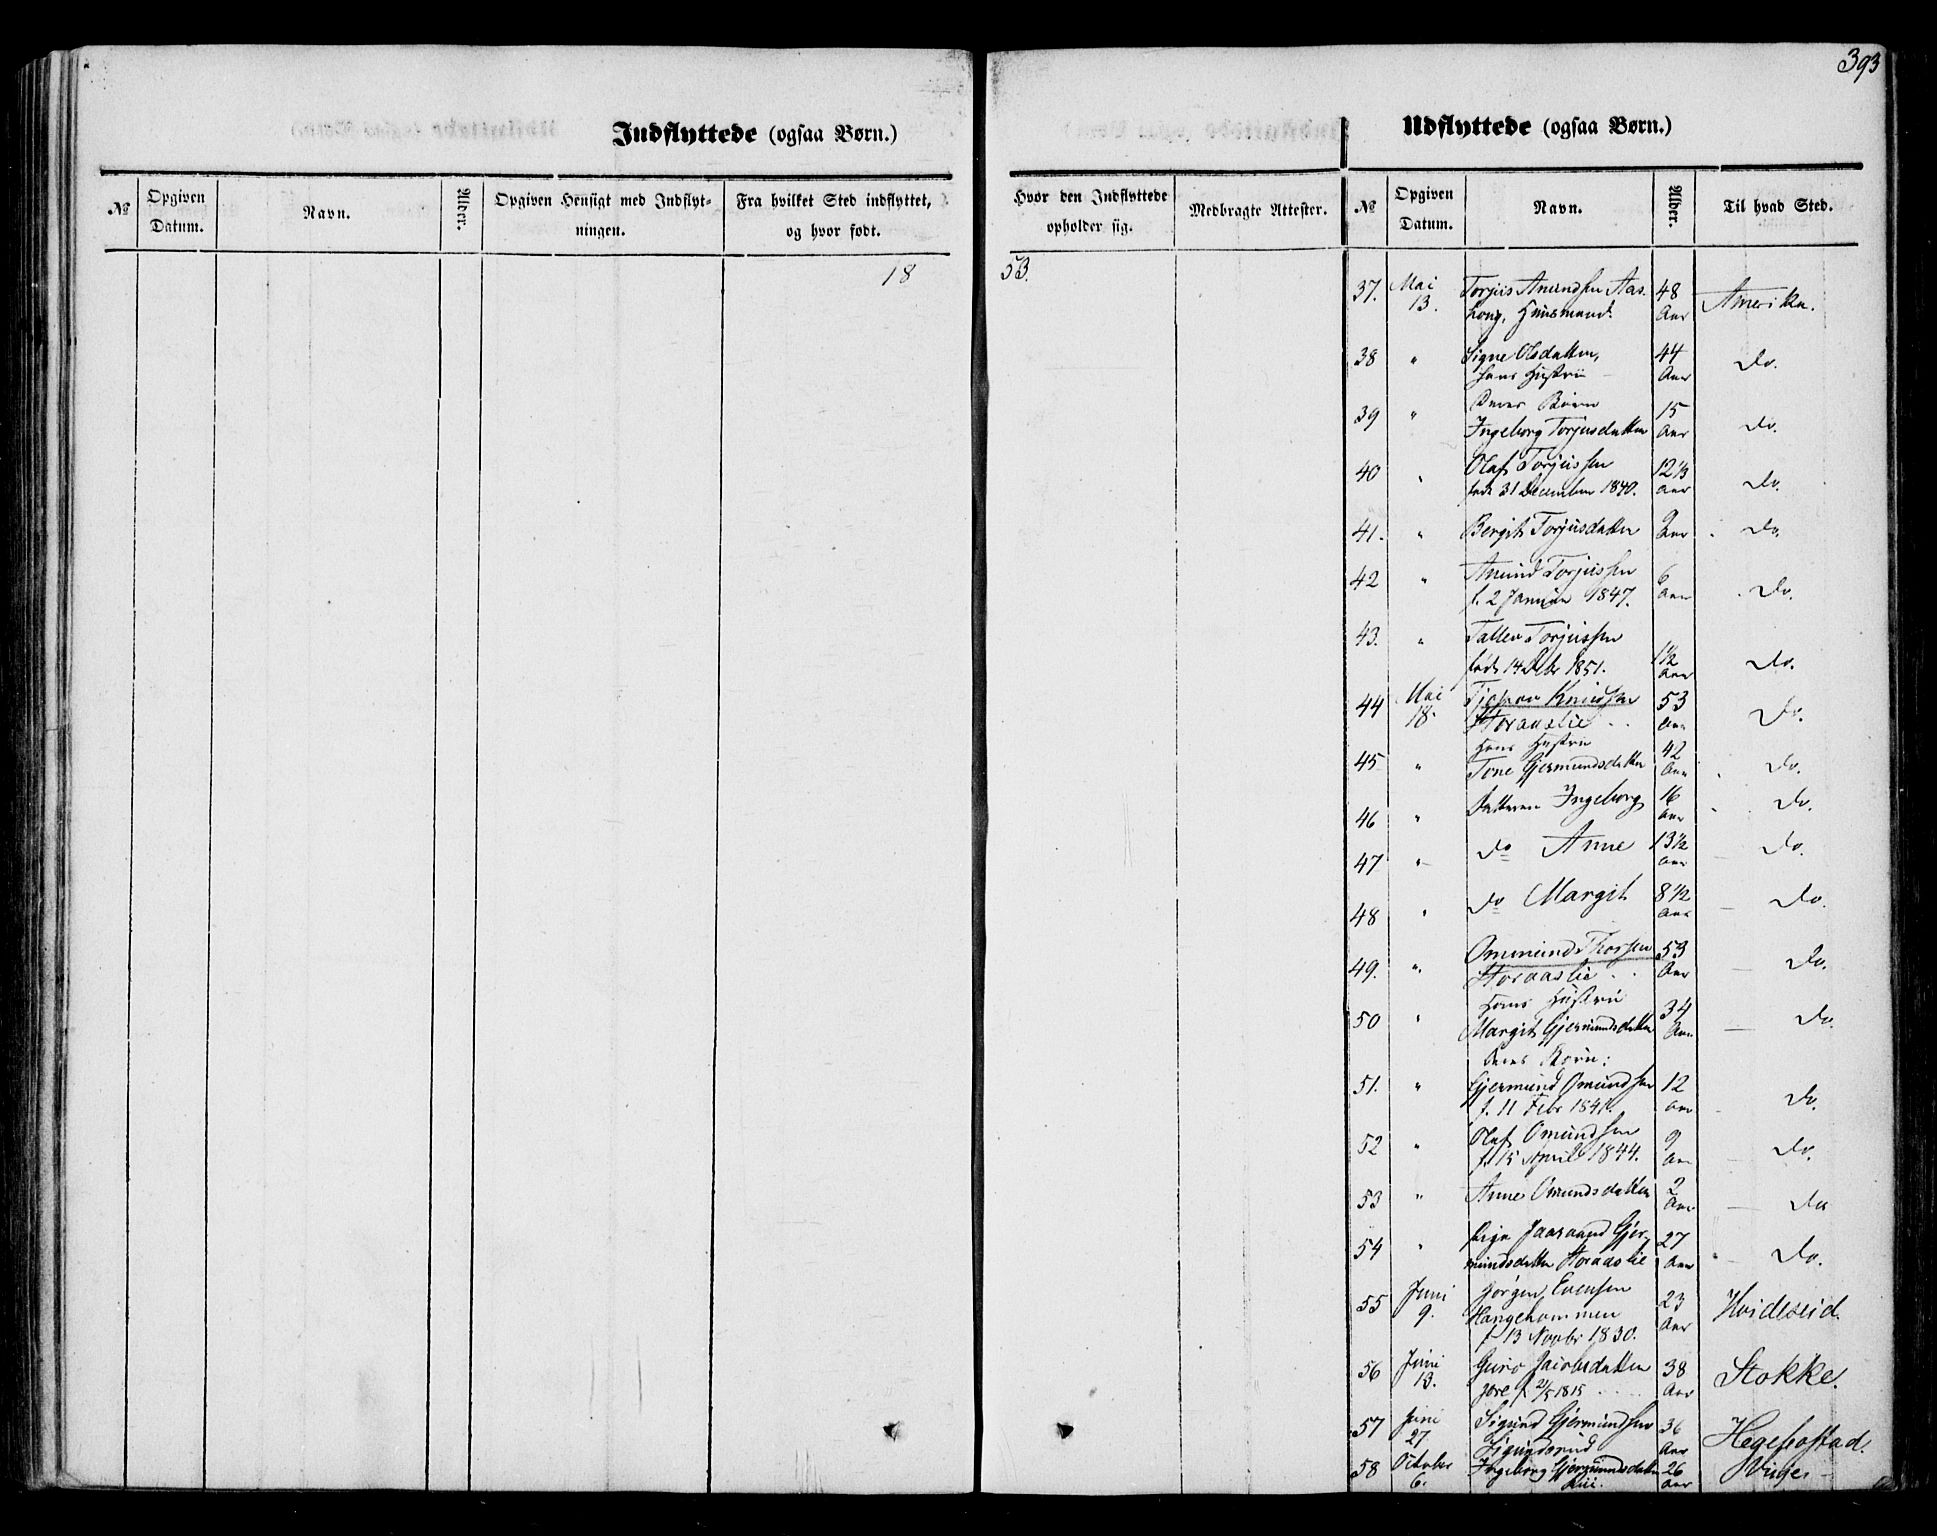 393
Indflyttede (ogsaa Børn.)
№
Opgiven Datum.
Navn.
Alder.
Opgiven Hensigt med Indflyt-
ningen.
Fra hvilket Sted indflyttet,
og hvor født.
18
Hvor den Indflyttede
opholder sig.
Medbragte Attester.
53.
Udflyttede (ogsaa Børn.)
№
Opgiven Datum.
Navn.
Alder.
Til hvad Sted.
37. Mai 13. Torjus Amundsen Aas- 48 Aar Amerika.
Huusmand.
38 " Signe Olsdatter, 44 Aar Do.
hans Hustru
39 " Deres Børn 15 Aar Do.
Ingeborg Torjusdatter
40 " Olaf Torjussen 12 1/3 Aar Do.
født 31 December 1840.
41. " Bergit Torjusdatter 9 Aar Do.
42 " Amund Torjussen 6 Aar Do.
f. 2 Januar 1847.
43. " Tallev Torjussen 1 1/2 Aar Do.
født 14 Debr 1851.
44 Mai 18. Knudsen 53 Aar Do.
Storaaslie
45 " Hans Hustru 42 Aar Do.
Tone Gjermundsdatter
46 " Datteren Ingeborg 16 Aar Do.
47 " do Anne 13 1/2 Aar Do.
48 " do Margit 8 1/2 Aar Do.
49. " Ommund Thorsen 53 Aar Do.
Storaaslie
50 " Hans Hustru 34 Aar Do.
Margit Gjermundsdatter
Deres Børn:
51. " Gjermund Omundsen 12 Aar Do.
f. 11 Febr 1841.
52 " Olaf Omundsen 9 Aar Do.
f. 15 April 1844.
53 " Anne Omundsdatter 2 Aar Do
54 " Pige Jaaraand Gjer- 27 Aar Do.
mundsdatter Storaaslie
55 Juni 9. Jørgen Evensen 23 Aar Hvideseid.
f 13 Novbr 1830.
56 Juni 13. Guro Jacobsdatter 38 Aar Stokke.
f 21/5 1815
57 Juni 27 Sigurd Gjermundsen 36 Aar Hegefostad.
58 October 6. Ingeborg Gjermundsdatter 26 Aar Vinje